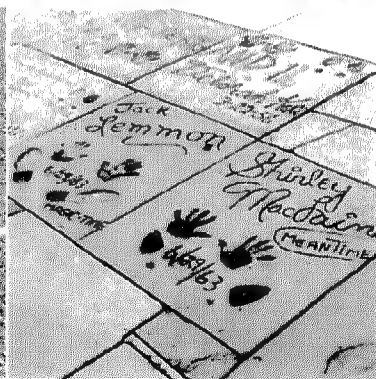 Jack
Lemmon
6-29-63
MAGIC-TIME
Shirley
MacLaine
MEANTIME
6/29/63